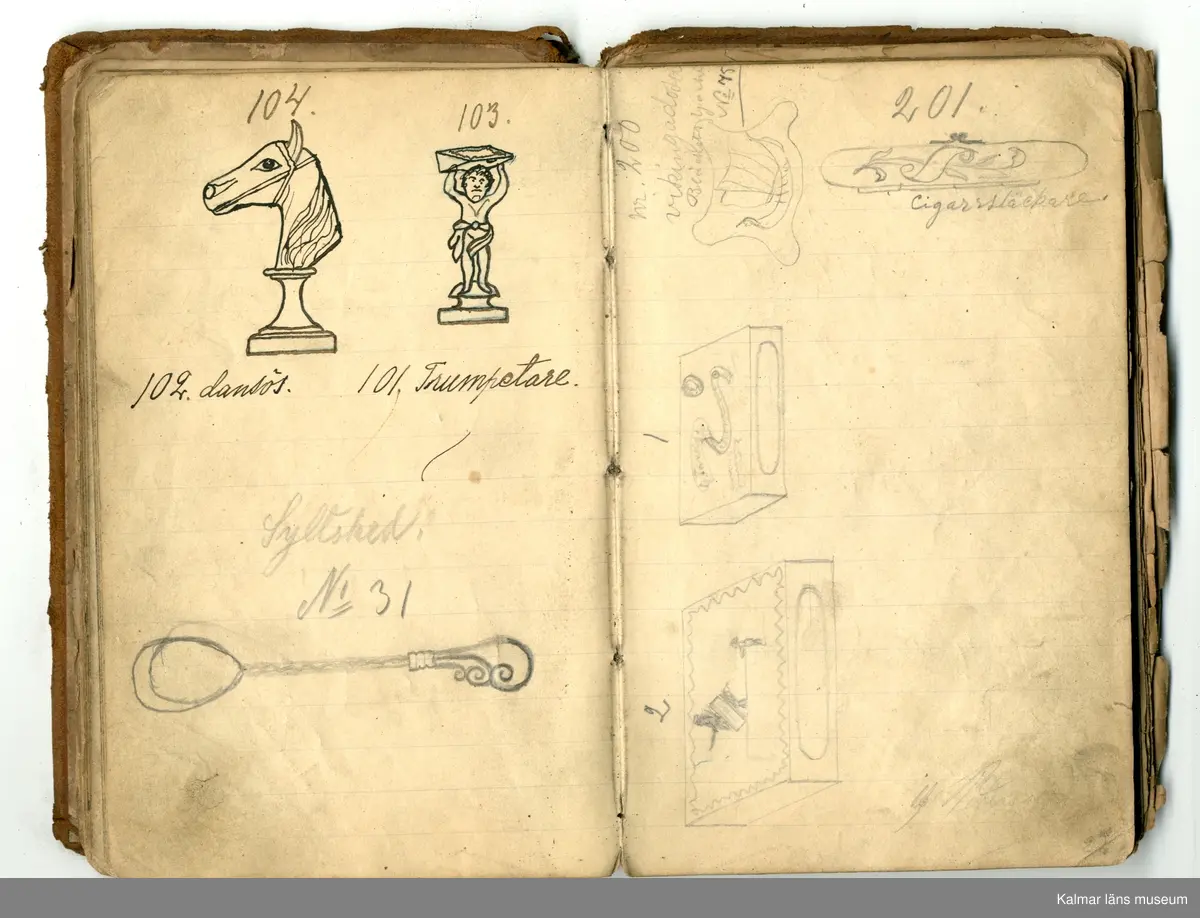 104.
103.
102. dansös.
101. Trumpetare.
Syltsked.
No 31
nr. 200
No 75
201.
Cigarrsläckare.
1
2
Kalmar läns museum